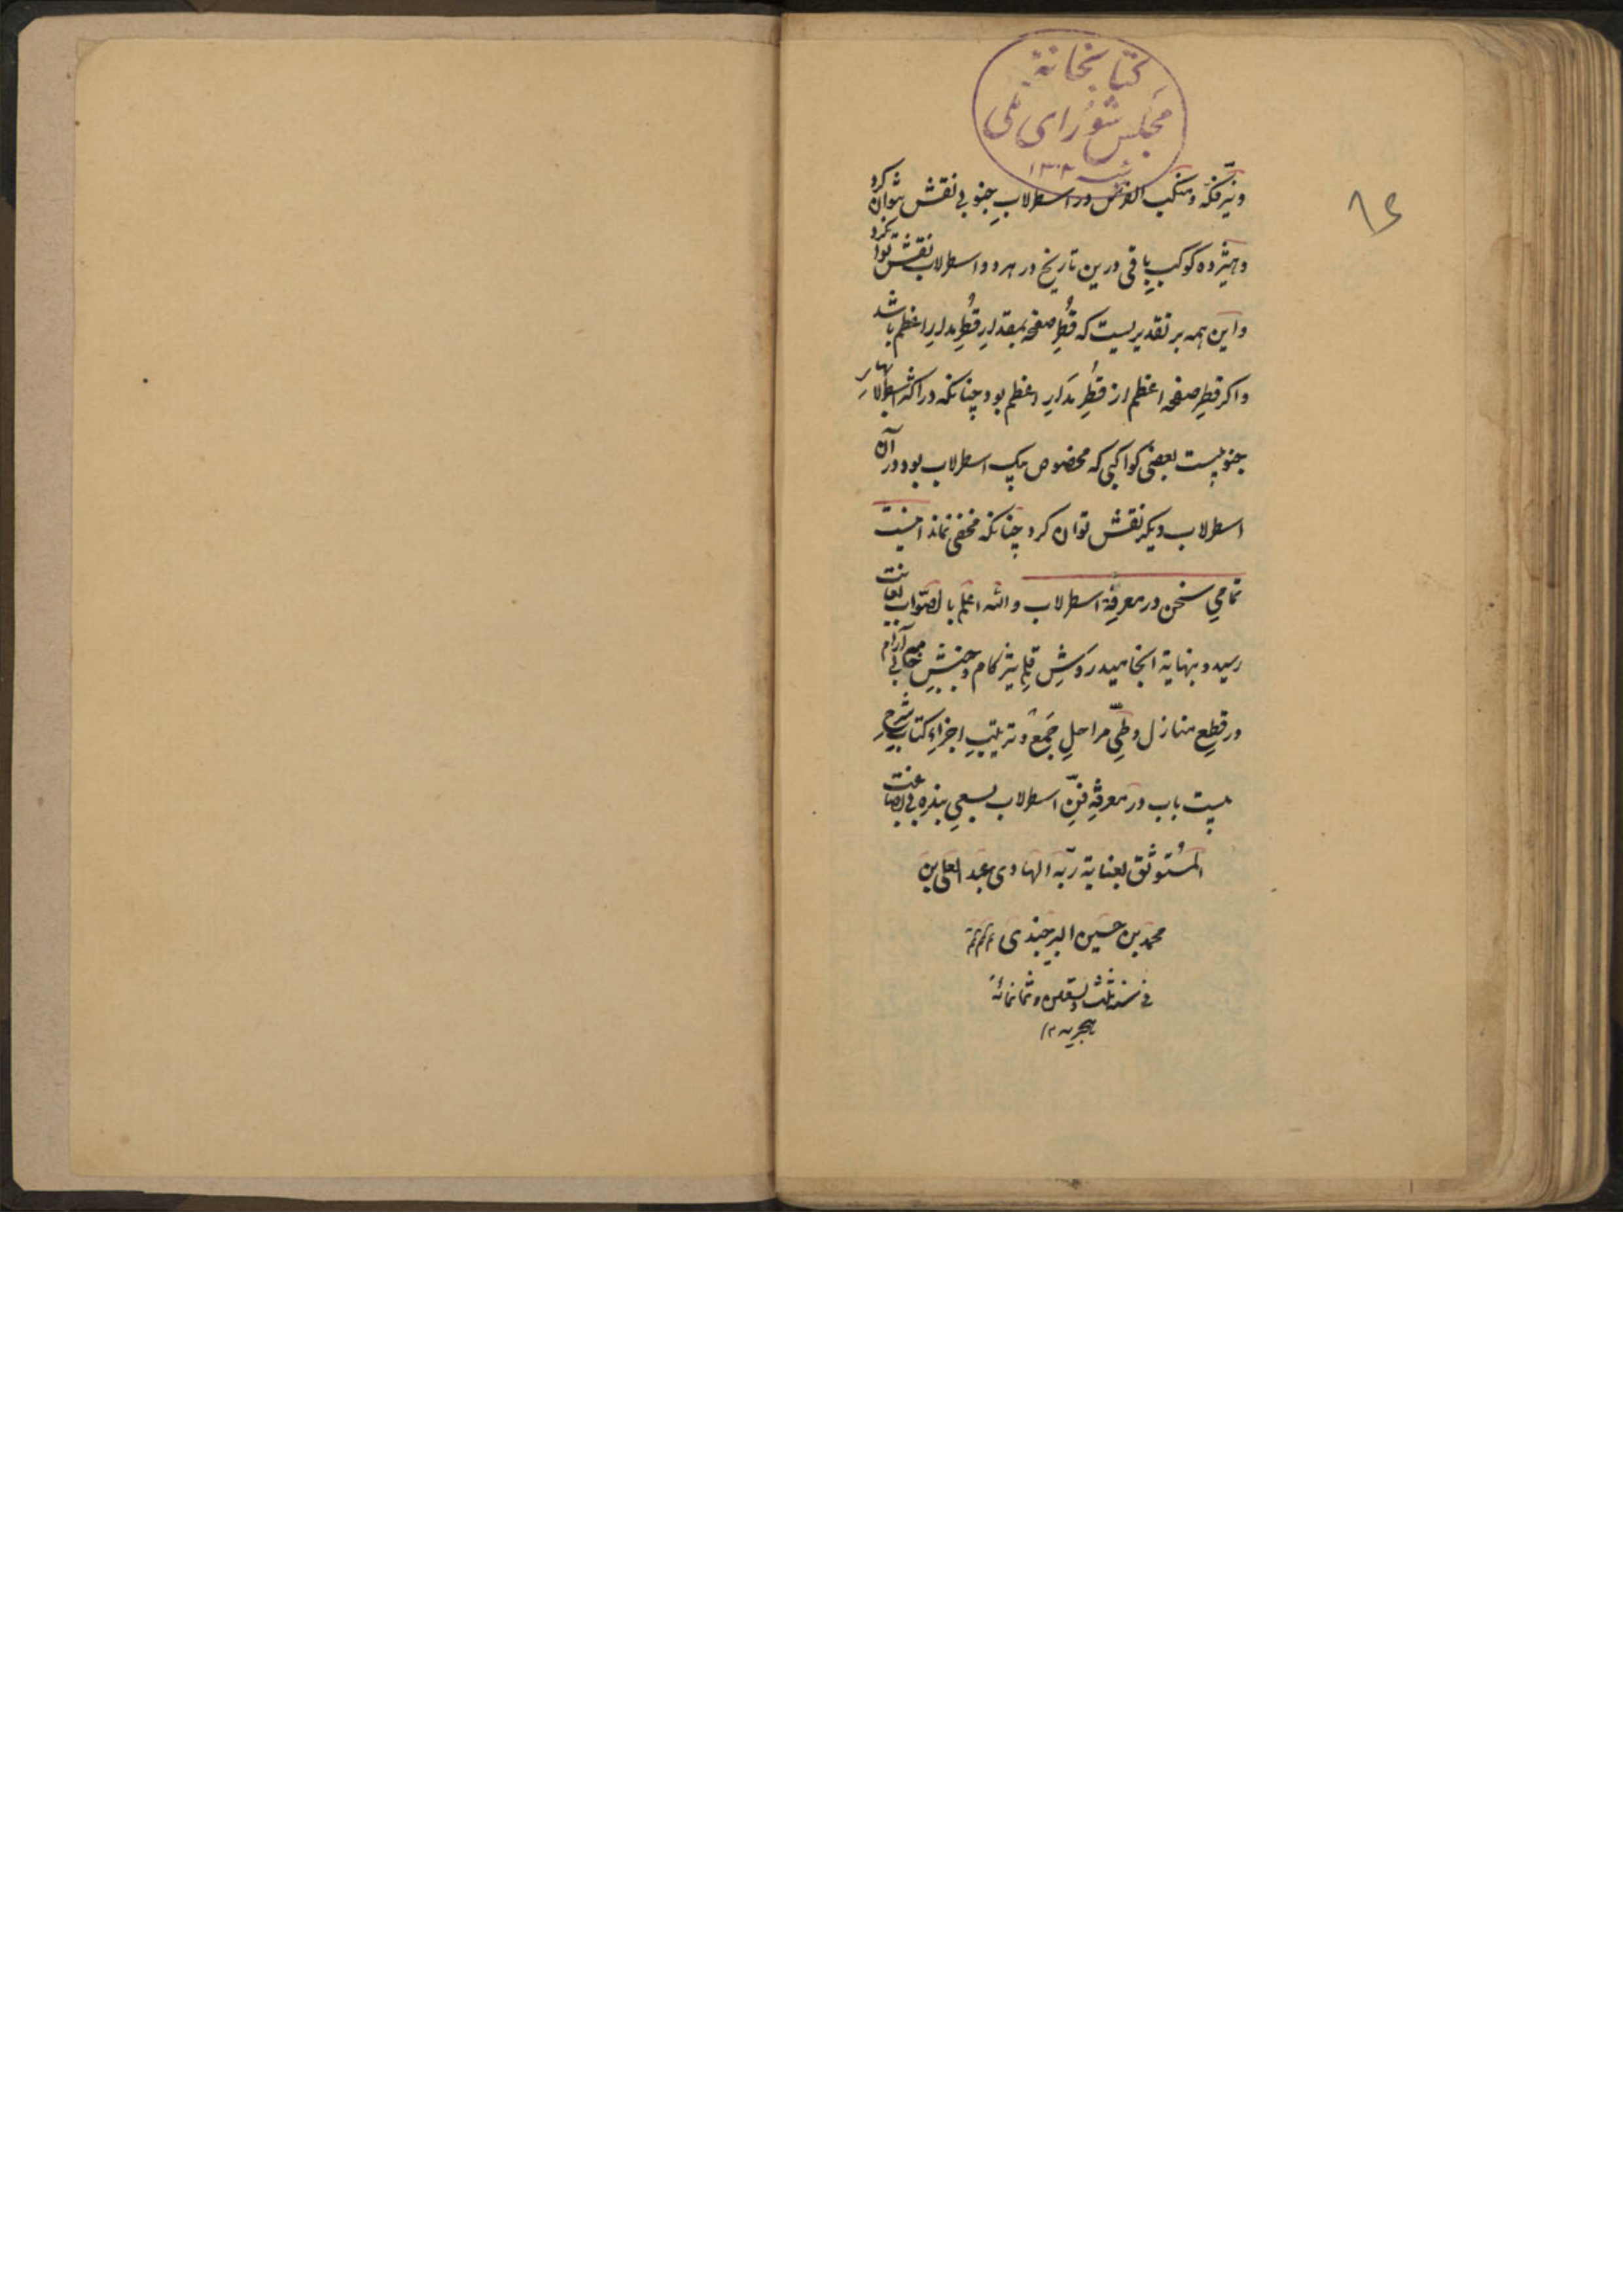 کتابخانهٔ
مجلس شورای ملی
سنه ۱۳۰۲
و نیّر فکّه و منکب الفرس در اسطرلابِ جنوبی نقش نتوان کرد
و هیژده کوکبِ باقی درین تاریخ در هر دو اسطرلاب نقش توان کرد
و این همه بر تقدیریست که قُطرِ صفحه بمقدارِ قُطرِ مدارِ اعظم باشد
و اکر قطرِ صفحه اعظم از قُطرِ مَدارِ اعظم بود چنانکه در اکثر اسطرلابهاءِ
جنوبیست بعضی کواکبی که مخصوص بیک اسطرلاب بود در آن
اسطرلاب دیکر نقش توان کرد چنانکه مخفی نماند اینست
تمامیِ سخن در معرفةِ اسطرلاب و الله اعلم بالصّواب بغایت
رسید و بنهایة انجامید روَشِ قلمِ تیزکام و جنبشِ خامهٔ بی آرام
در قطعِ منازل و طَیِّ مراحلِ جَمع و ترتیبِ اجزاءِ کتابِ شرحِ
بیست باب در معرفةِ فنِّ اسطرلاب بسعیِ بنده بی بضاعت
المُستوثق بعنایة ربّه الهادی عبد العلی بن
محمد بن حسین البرجندی
فی سنه ثلث و تسعین و ثمانمائه
هجریه ۱۲